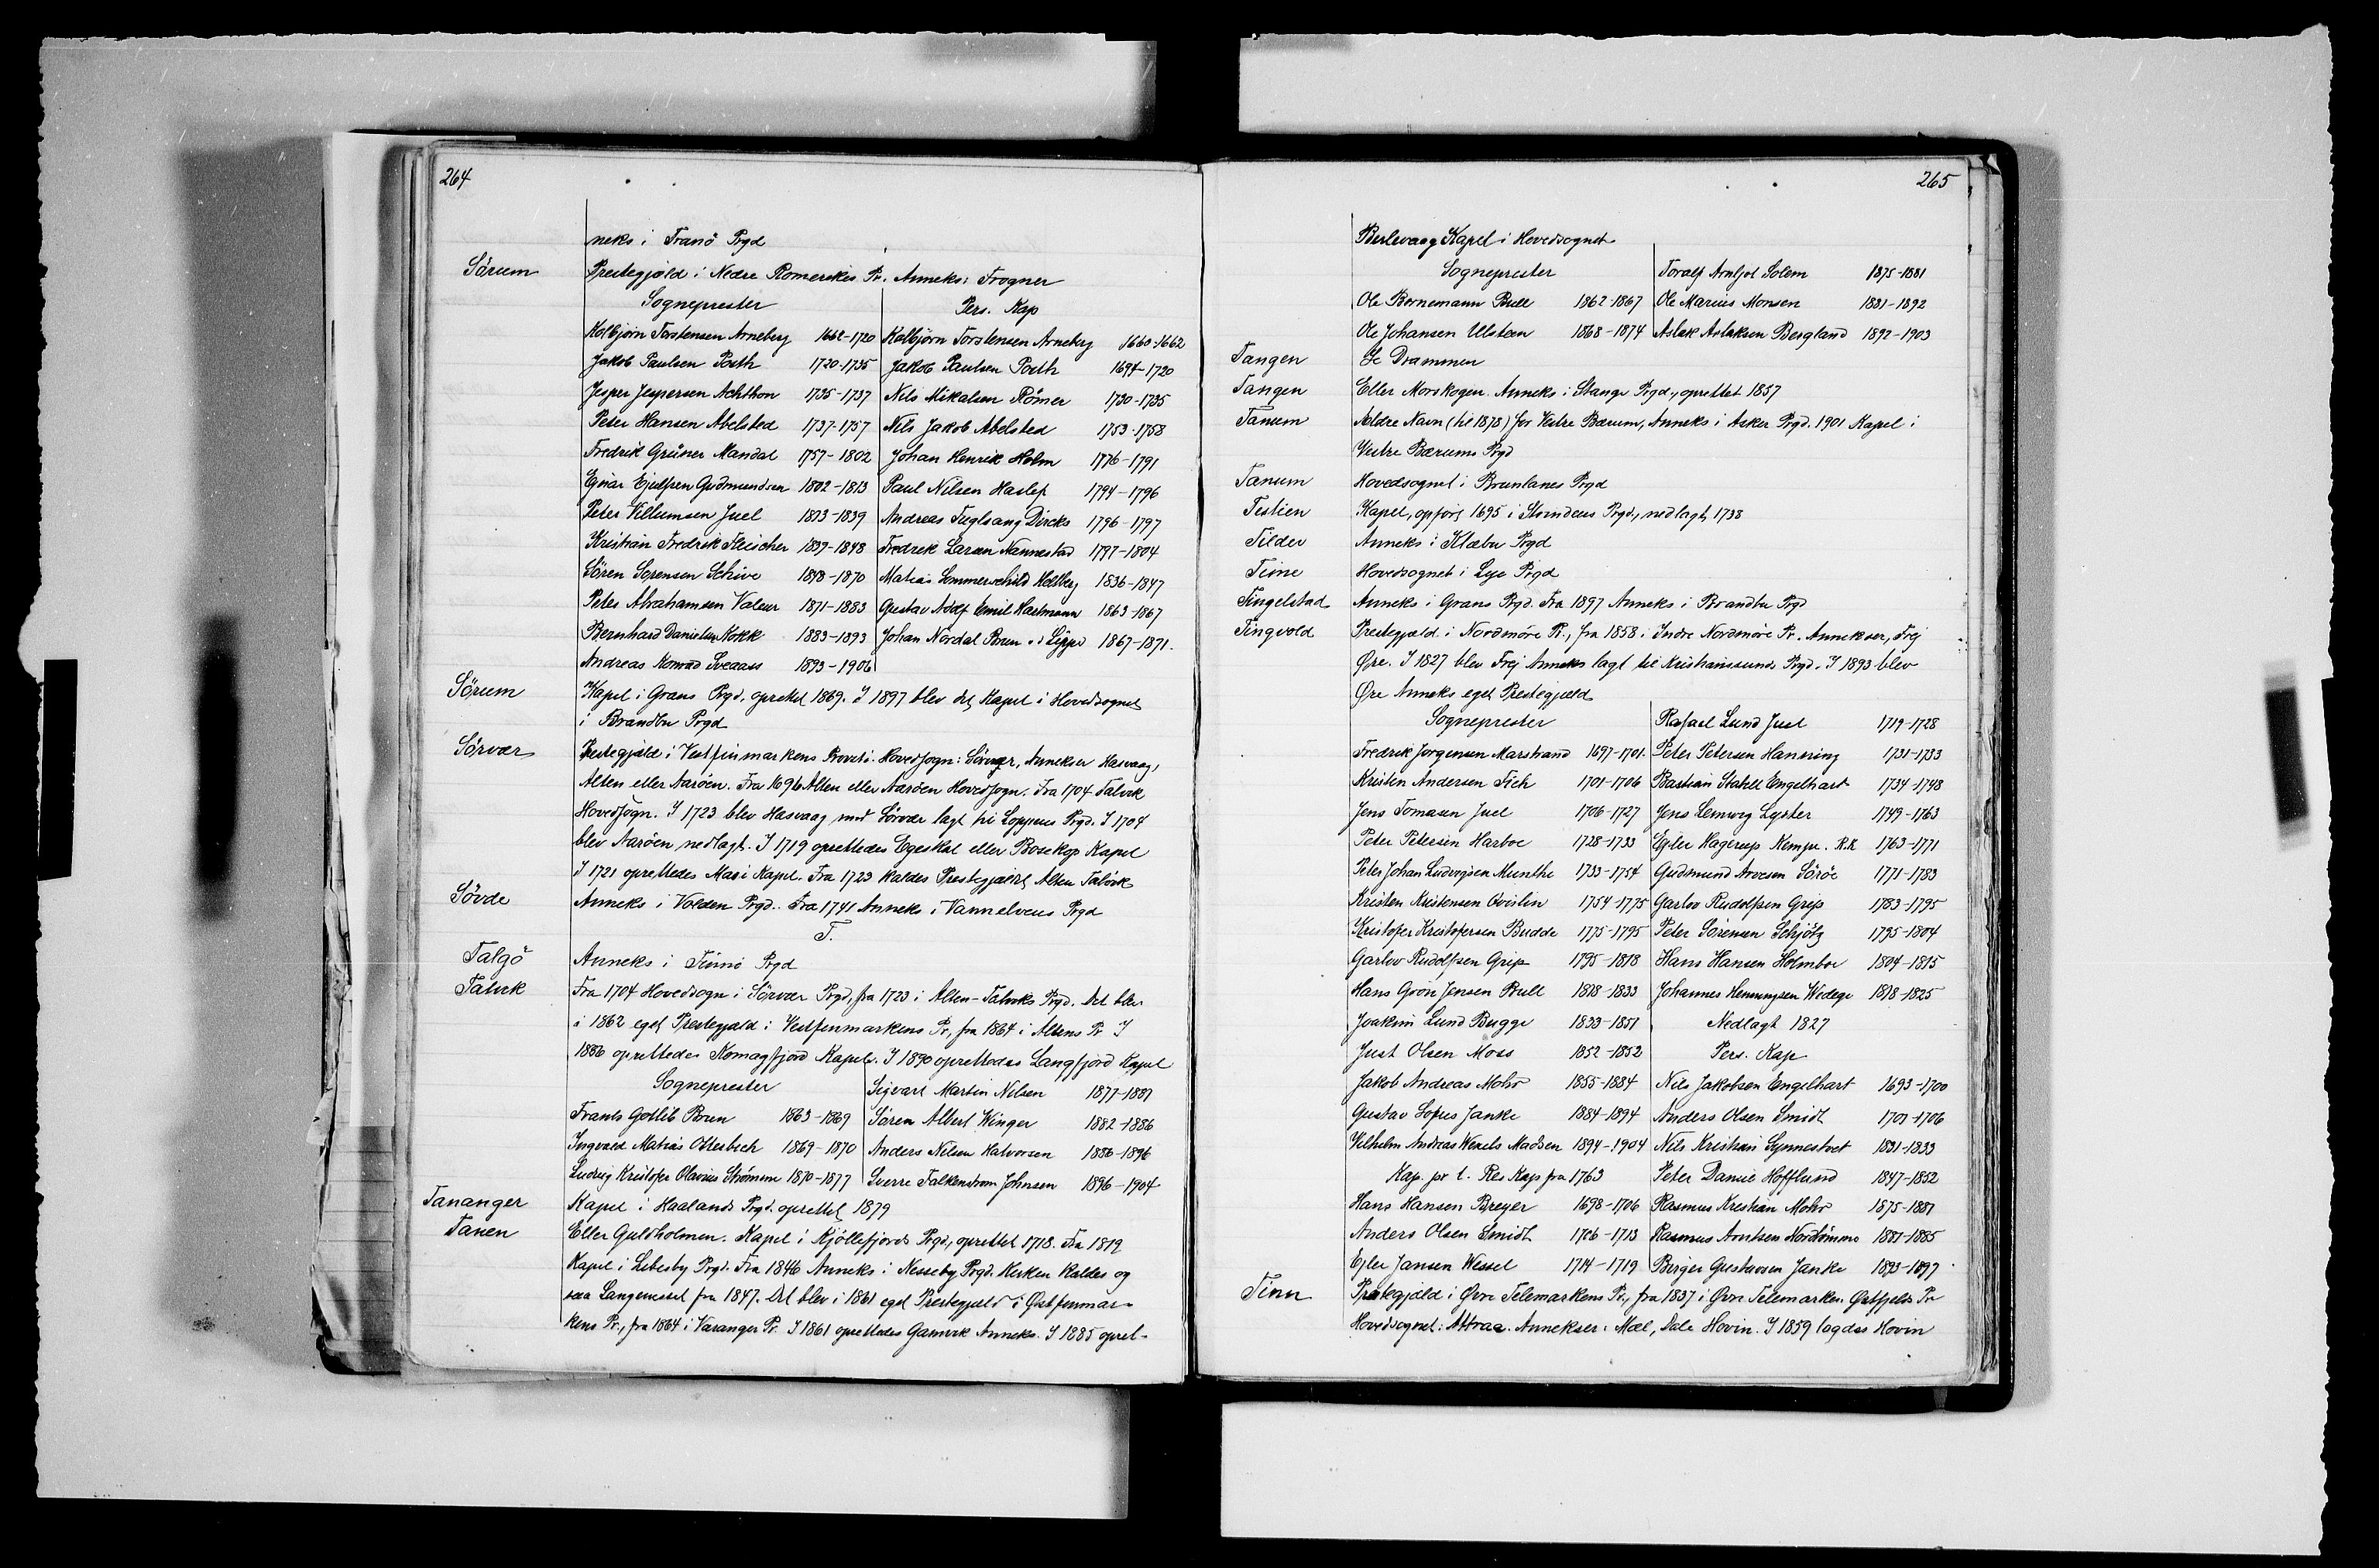 264
neks i Tranö Prgd
Sörum Prestegjæld i Nedre Romerikes Pr. Anneks: Frogner
Sogneprester Pers. Kap
Kolbjörn Torstensen Arneberg 1662-1720 Kolbjörn Torstensen Arneberg 1660-1662
Jakob Paulsen Poth 1720-1735 Jakob Paulsen Poth 1694-1720
Jesper Jespersen Achthon 1735-1737 Nils Mikalsen Römer 1730-1735
Peter Hansen Abelsted 1737-1757 Nils Jakob Abelsted 1753-1758
Fredrik Grüner Mandal 1757-1802 Johan Henrik Holm 1776-1791
Ejnar Ejulfsen Gudmundsen 1802-1813 Paul Nilsen Haslef 1794-1796
Peter Villumsen Juel 1813-1839 Andreas Fuglsang Dircks 1796-1797
Kristian Fredrik Fleischer 1839-1848 Fredrik Larsen Nannestad 1797-1804
Sören Sorensen Schive 1848-1870 Matias Sommerschild Hellberg 1836-1847
Peter Abrahamsen Valeur 1871-1883 Gustav Adolf Emil Hartmann 1863-1867
Bernhard Danielsen Kokk 1883-1893 Johan Nordal Brun v. d. Lippe 1867-1871.
Andreas Konrad Sveaass 1893-1906
Sörum Kapel i Grans Prgd. oprettet 1869. I 1897 blev det Kapel i Hovedsognet
i Brandbu Prgd
Sörvær Prestegjæld i Vestfinmarkens Provsti. Hovedsogn: Sörvær, Annekser Hasvaag,
Alten eller Aaröen. Fra 1696 Alten eller Aaröen Hovedsogn. Fra 1704 Talvik
Hovedsogn. I 1723 blev Hasvaag med Sörvær lagt til Loppens Prgd. I 1704
blev Aaröen nedlagt. I 1719 oprettedes Egeskal eller Bosekop Kapel
I 1721 oprettedes Masi Kapel. Fra 1723 kaldes Prestegjældet Alten Talvik
Sövde Anneks i Volden Prgd. Fra 1741 Anneks i Vannelvens Prgd
T.
Talgö Anneks i Finnö Prgd
Talvik Fra 1704 Hovedsogn i Sörvær Prgd, fra 1723 i Alten-Talviks Prgd. Det blev
i 1862 eget Prestegjæld i Vestfinmarkens Pr, fra 1864 i Altens Pr. I
1886 oprettedes Komagfjord Kapel. I 1890 oprettedes Langfjord Kapel
Sogneprester Sigvart Martin Nilsen 1877-1881
Frants Gotlib Brun 1863-1869 Sören Albert Winger 1882-1886
Ingvald Matias Otterbech 1869-1870 Anders Nilsen Halvorsen 1886-1896
Ludvig Kristofer Olavius Strömme 1870-1877 Sverre Falkenstrom Johnsen 1896-1904
Tananger Kapel i Haalands Prgd. oprettet 1879
Tanen Eller Guldholmen. Kapel i Kjöllefjords Prgd., oprettet 1718. Fra 1819
Kapel i Lebesby Prgd. Fra 1846 Anneks i Nesseby Prgd. Kirken kaldes og
saa Langenesset fra 1847. Det blev i 1861 eget Prestegjæld i Østfinmar-
kens Pr., fra 1864 i Varanger Pr. I 1861 oprettedes Gamvik Anneks. I 1885 opret-
265
Berlevaag Kapel i Hovedsognet
Sogneprester Toralf Arnljot Solem 1875-1881
Ole Bornemann Bull 1862-1867 Ole Marius Monsen 1881-1892
Ole Johansen Ulsteen 1868-1874 Aslak Aslaksen Bergland 1892-1903
Tangen Se Drammen
Tangen Eller Morskogen. Anneks i Stange Prgd., oprettet 1857
Tanum Ældre Navn (til 1878) for Vestre Bærum, Anneks i Asker Prgd. 1901 Kapel i
Vestre Bærums Prgd
Tanum Hovedsognet i Brunlanes Prgd
Testien Kapel, opfört 1695 i Storndens Prgd., nedlagt 1738
Tilder Anneks i Klæbu Prgd
Time Hovedsognet i Lye Prgd
Tingelstad Anneks i Grans Prgd. Fra 1897 Anneks i Brandbu Prgd
Tingvold Prestegjæld i Nordmöre Pr., fra 1858 i Indre Nordmöre Pr. Annekser, Frej
Øre. I 1827 blev Frej Anneks lagt til Kristianssunds Prgd. I 1893 blev
Øre Anneks eget Prestegjæld
Sogneprester Rafael Lund Juel 1719-1728
Fredrik Jorgensen Marstrand 1697-1701. Peter Petersen Hanning 1731-1733
Kristen Andersen Fich 1701-1706 Bastian Stabell Engelhart 1734-1748
Jens Tomasen Juel 1706-1727 Jens Lemvig Lyster 1749-1763
Peter Petersen Harboe 1728-1733 Ejler Hagerup Kempe. R.K 1763-1771
Peter Johan Ludvigsen Munthe 1733-1754 Gudmund Arvesen Söröe 1771-1783
Kristen Kristensen Qvislin 1754-1775 Garlov Rudolfsen Grip 1783-1795
Kristofer Kristofersen Budde 1775-1795 Peter Sörensen Schjötz 1795-1804
Garlov Rudolfsen Grip 1795-1818 Hans Hansen Holmboe 1804-1815
Hans Grön Jensen Bull 1818-1833 Johannes Henningsen Wedege 1818-1825
Joakim Lund Bugge 1833-1851 Nedlagt 1827
Just Olsen Moss 1852-1852 Pers. Kap
Jakob Andreas Mohr 1855-1884 Nils Jakobsen Engelhart 1693-1700
Gustav Sofus Janke 1884-1894 Anders Olsen Smidt 1701-1706
Vilhelm Andreas Wexels Madsen 1894-1904 Nils Kristian Synnestvet 1831-1833
Kap. pr l. Res Kap fra 1763 Peter Daniel Hofflund 1847-1852
Hans Hansen Breyer 1698-1706 Rasmus Kristian Mohr 1875-1881
Anders Olsen Smidt 1706-1713 Rasmus Arntsen Nordtömme 1881-1885
Ejler Jansen Wessel 1714-1719 Birger Gustavsen Janke 1893-1897
Tinn Prestegjæld i Øvre Telemarkens Pr., fra 1837 i Øvre Telemarkens Østfjelds Pr
Hovedsognet: Attraa. Annekser: Mæl, Dale Hovin. I 1859 lagdes Hovin